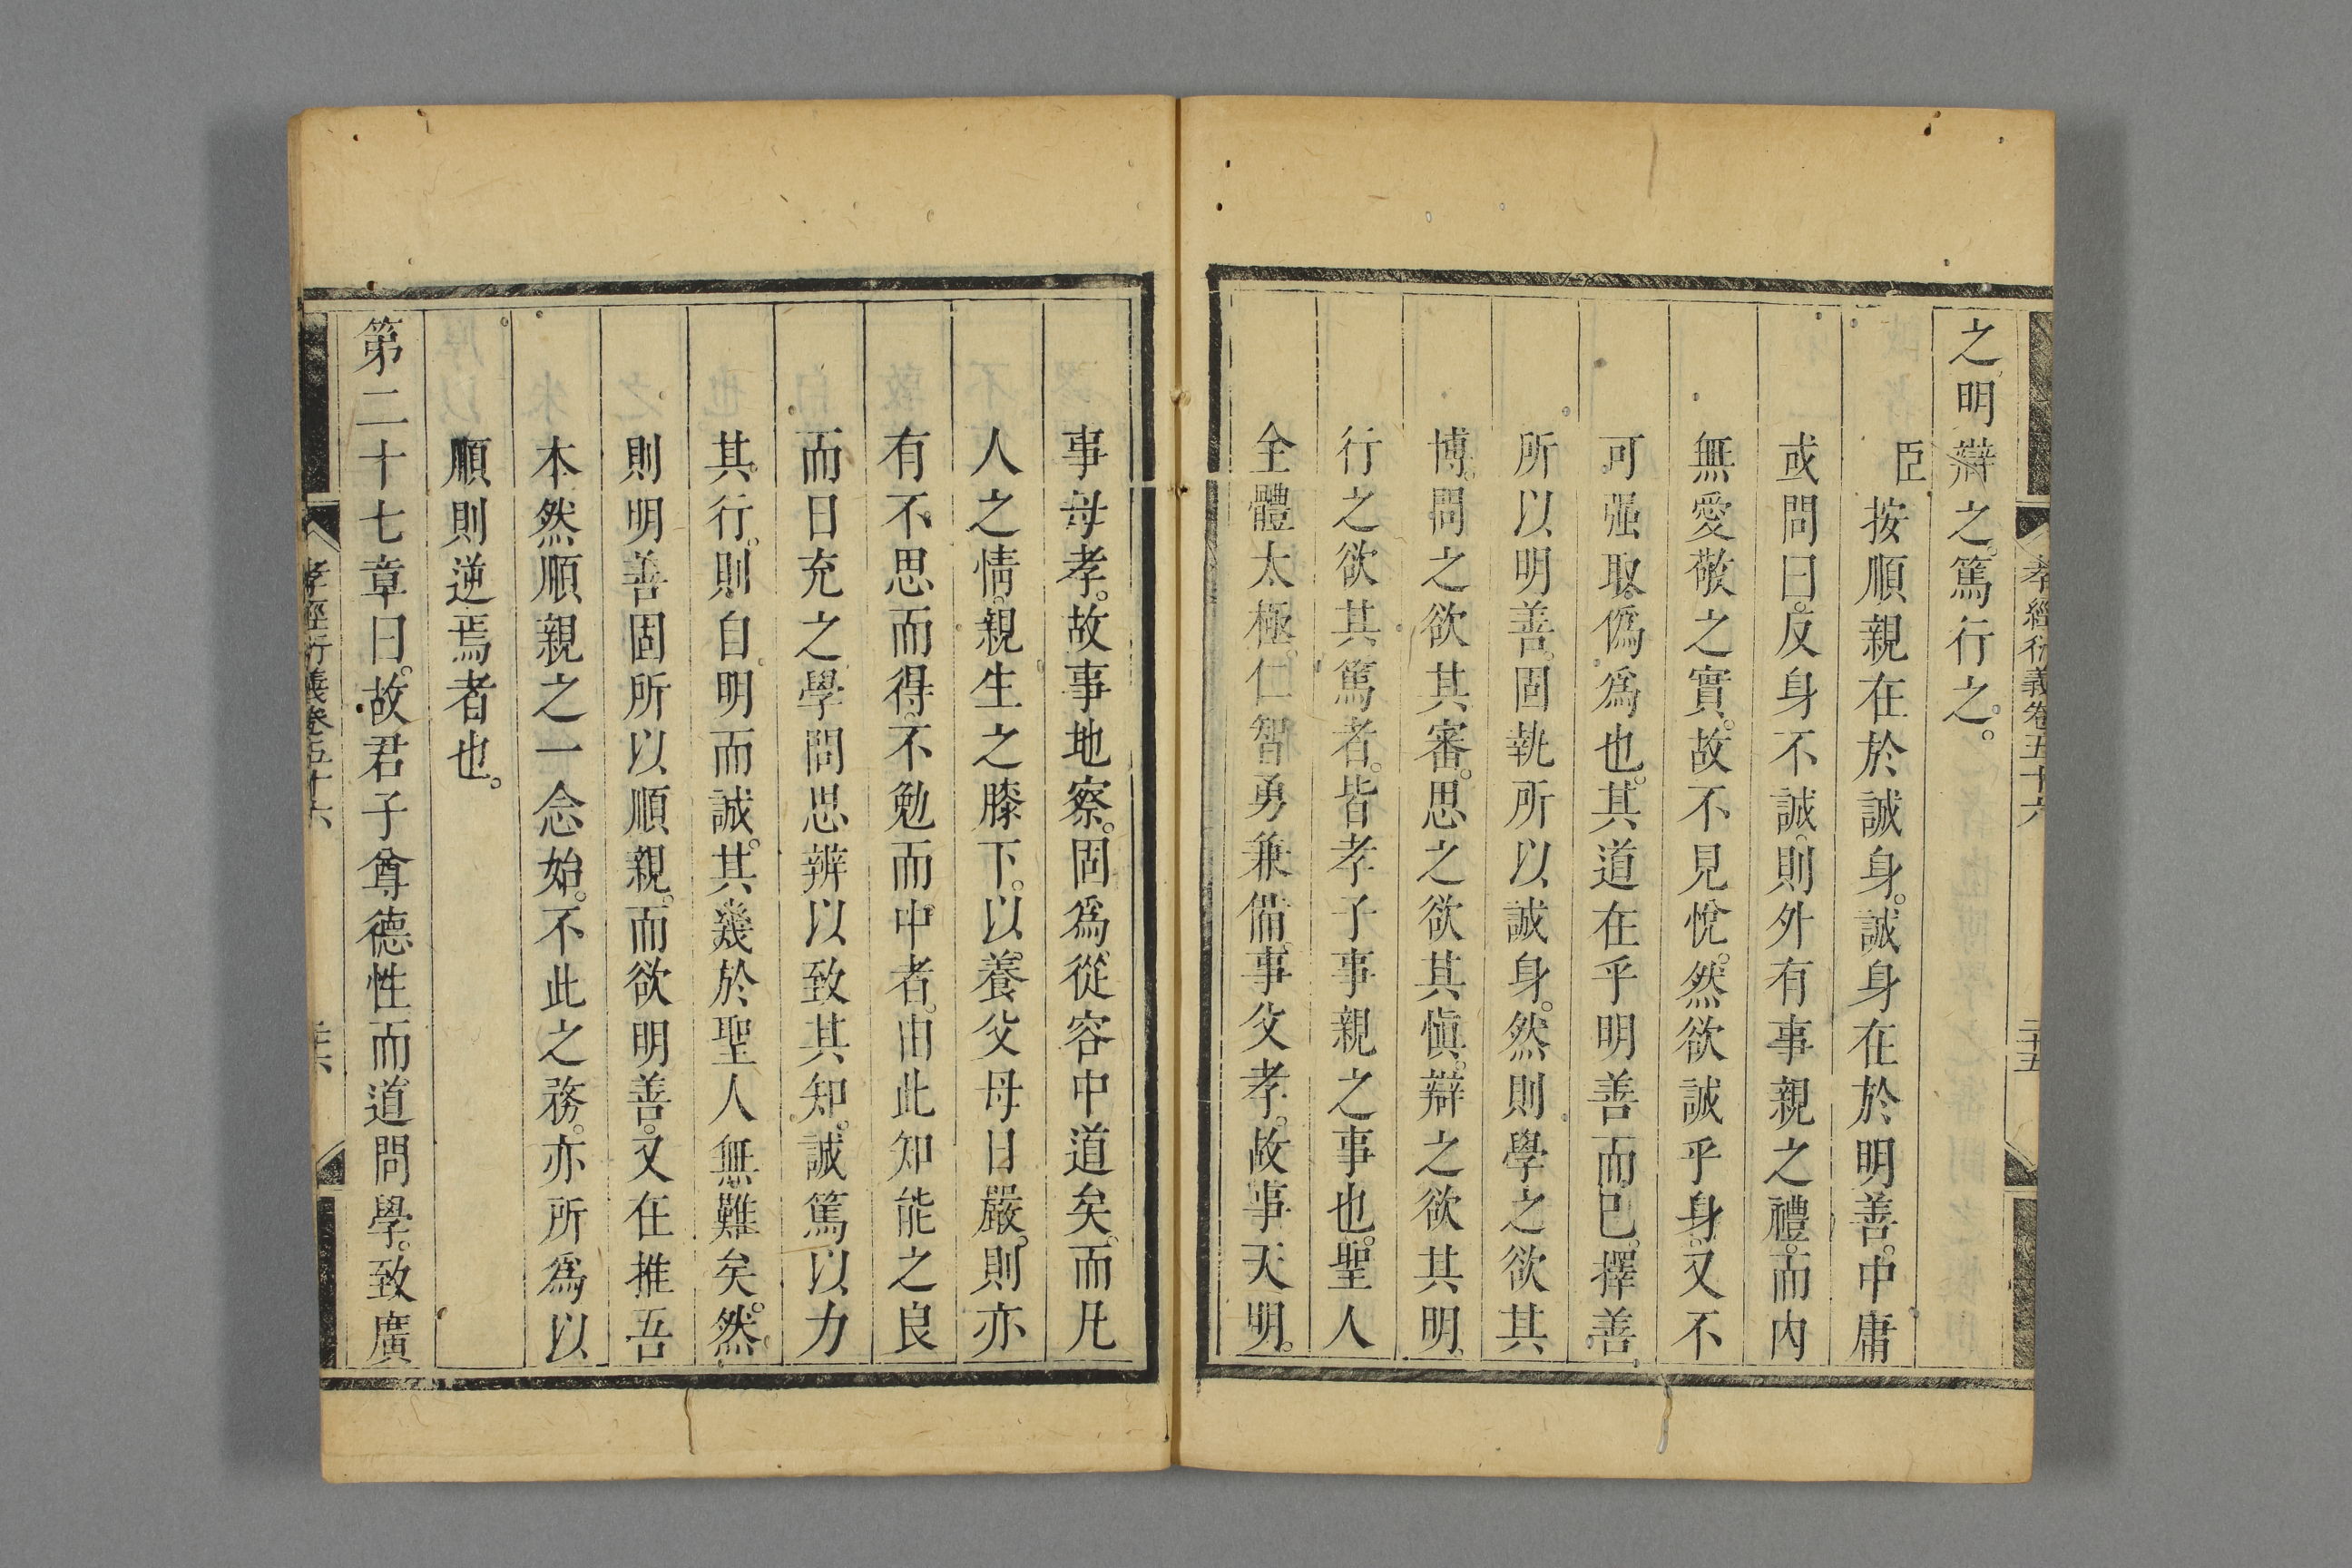 孝經衍義卷五十六
二十五
之明辯之。篤行之。
臣按順親在於誠身。誠身在於明善。中庸
或問曰。反身不誠。則外有事親之禮。而内
無愛敬之實。故不見悅。然欲誠乎身。又不
可强取。僞爲也。其道在乎明善而已。擇善
所以明善。固執所以誠身。然則學之欲其
博。問之欲其審。思之欲其愼。辯之欲其明。
行之欲其篤者。皆孝子事親之事也。聖人
全體太極。仁智勇兼備。事父孝。故事天明。
事母孝。故事地察。固爲從容中道矣。而凡
人之情。親生之膝下。以養父母日嚴。則亦
有不思而得。不勉而中者。由此知能之良
而日充之學問思辨以致其知。誠篤以力
其行。則自明而誠。其幾於聖人無難矣。然
則明善固所以順親。而欲明善。又在推吾
本然順親之一念始。不此之務。亦所爲以
順則逆焉者也。
第二十七章曰。故君子尊德性而道問學。致廣
孝經衍義卷五十六